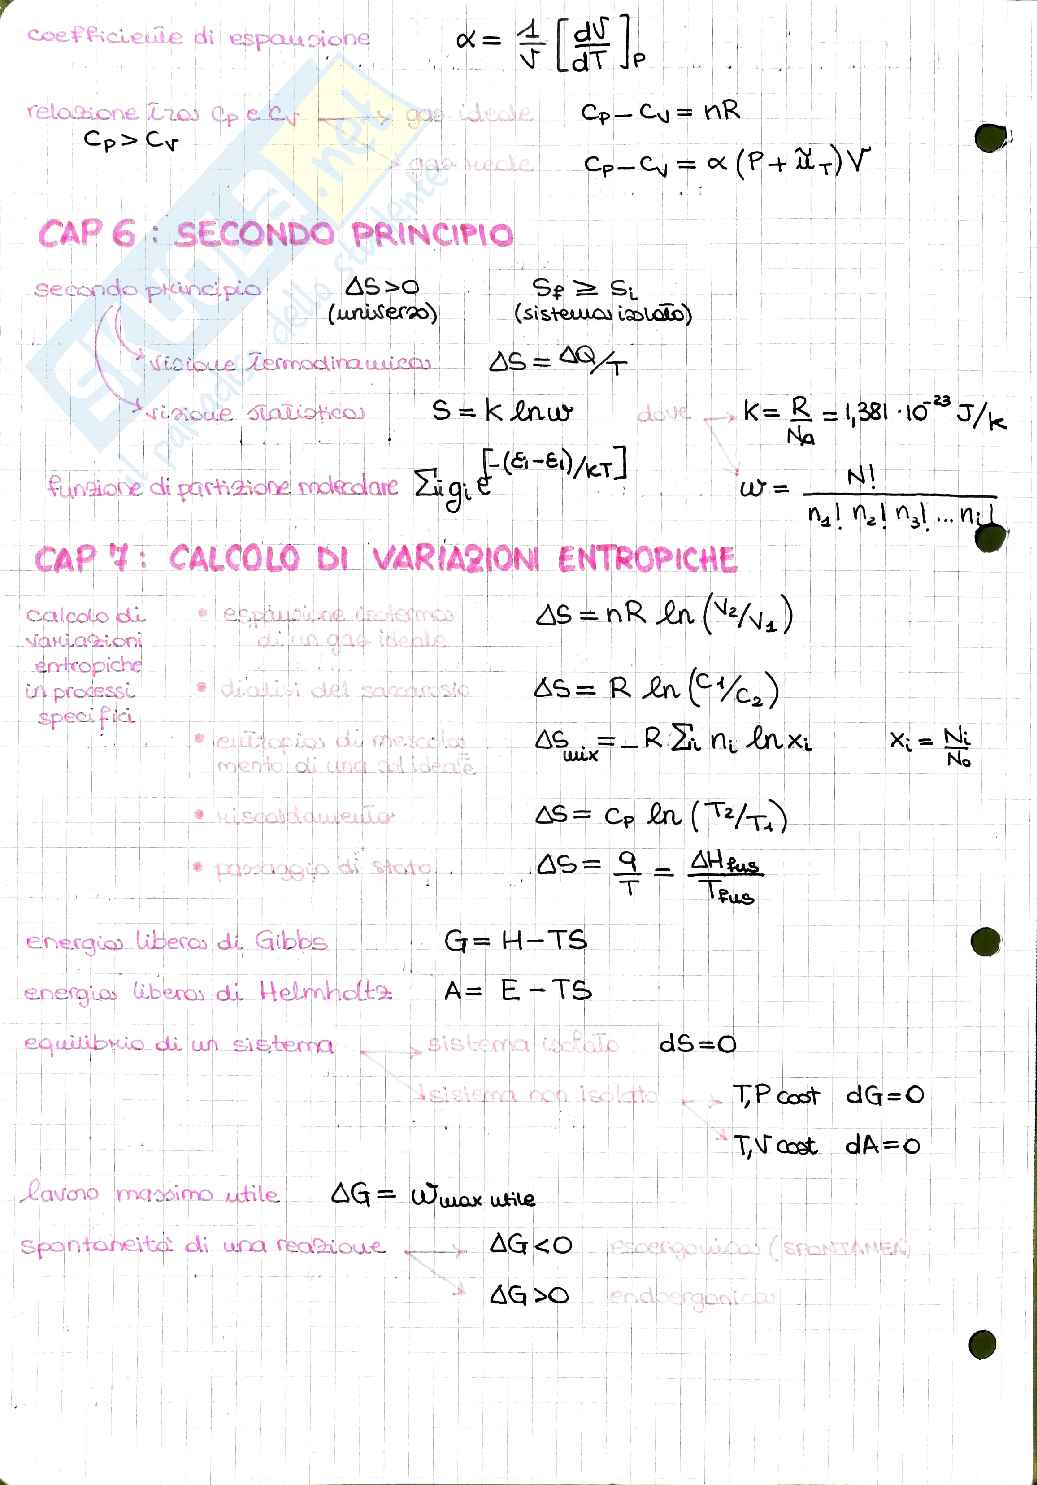 coefficiente di espansione α = 1/V [dV/dT]P
relazione tra Cp e Cv → gas ideale Cp – Cv = nR
Cp > Cv
→ gas reale Cp – Cv = α (P + π̃T) V
CAP 6 : SECONDO PRINCIPIO
secondo principio ΔS>0 Sf ≥ Si
(universo) (sistema isolato)
visione termodinamica ΔS = ΔQ/T
visione statistica S = K ln w dove → K = R/Na = 1,381 · 10⁻²³ J/K
funzione di partizione molecolare Σi gi e[-(εi-εi)/KT] w = N! / n1! n2! n3! ... ni!
CAP 7 : CALCOLO DI VARIAZIONI ENTROPICHE
calcolo di variazioni entropiche in processi specifici
• espansione isoterma di un gas ideale ΔS = nR ln (V2/V1)
• dialisi del saccarosio ΔS = R ln (C1/C2)
• entropia di mescolamento di una sol ideale ΔSmix = – R Σi ni ln xi xi = Ni/No
• riscaldamento ΔS = Cp ln (T2/T1)
• passaggio di stato ΔS = q/T = ΔHfus/Tfus
energia libera di Gibbs G = H – TS
energia libera di Helmholtz A = E – TS
equilibrio di un sistema → sistema isolato dS=0
→ sistema non isolato → T,P cost dG=0
T,V cost dA=0
lavoro massimo utile ΔG = Wmax utile
spontaneità di una reazione → ΔG<0 esoergonica (SPONTANEA)
ΔG>0 endoergonica
SKUOLA.net
il paradiso dello studente